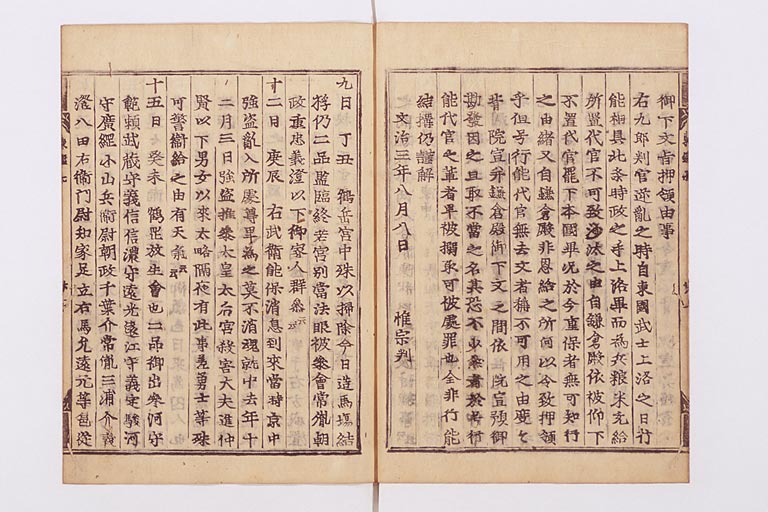 御下文旨押領由事
右九郎判官逆乱之時自東國武士上洛之日行
能相具北条時政之手上洛畢而為兵粮米充給
所置代官不可致沙汰之由自鎌倉殿依被仰下
不置代官罷下本國畢况於今重保者無可知行
之由緒又自鎌倉殿非恩給之所何以今致押領
乎但号行能代官無去文者稱不可用之由歟
背院宣并鎌倉殿御下文之間依院宣預御
勘發因之且取不當之名其恐不少若於号行
能代官之輩者早被搦取可被處罪也全非行能
結構仍謹解
文治三年八月八日 惟宗判
九日 丁丑 鶴岳宮中殊以掃除今日造馬塲結
埒仍二品監臨給若宮別當法眼被參會常胤朝
政重忠義澄以下御家人群參云々
十二日 庚辰 右武衛能保消息到來當時京中
強盗乱入所處尊卑為之莫不消魂就中去年十
二月三日強盗推參太皇太后宮殺害大夫進仲
賢以下男女以來太略隔夜有此事差勇士等殊
可警衛給之由有天氣云々
十五日 癸未 鶴罡放生會也二品御出參河守
範頼武蔵守義信信濃守遠光遠江守義定駿河
守廣綱小山兵衛尉朝政千葉介常胤三浦介義
澄八田右衛門尉知家足立右馬允遠元等扈從